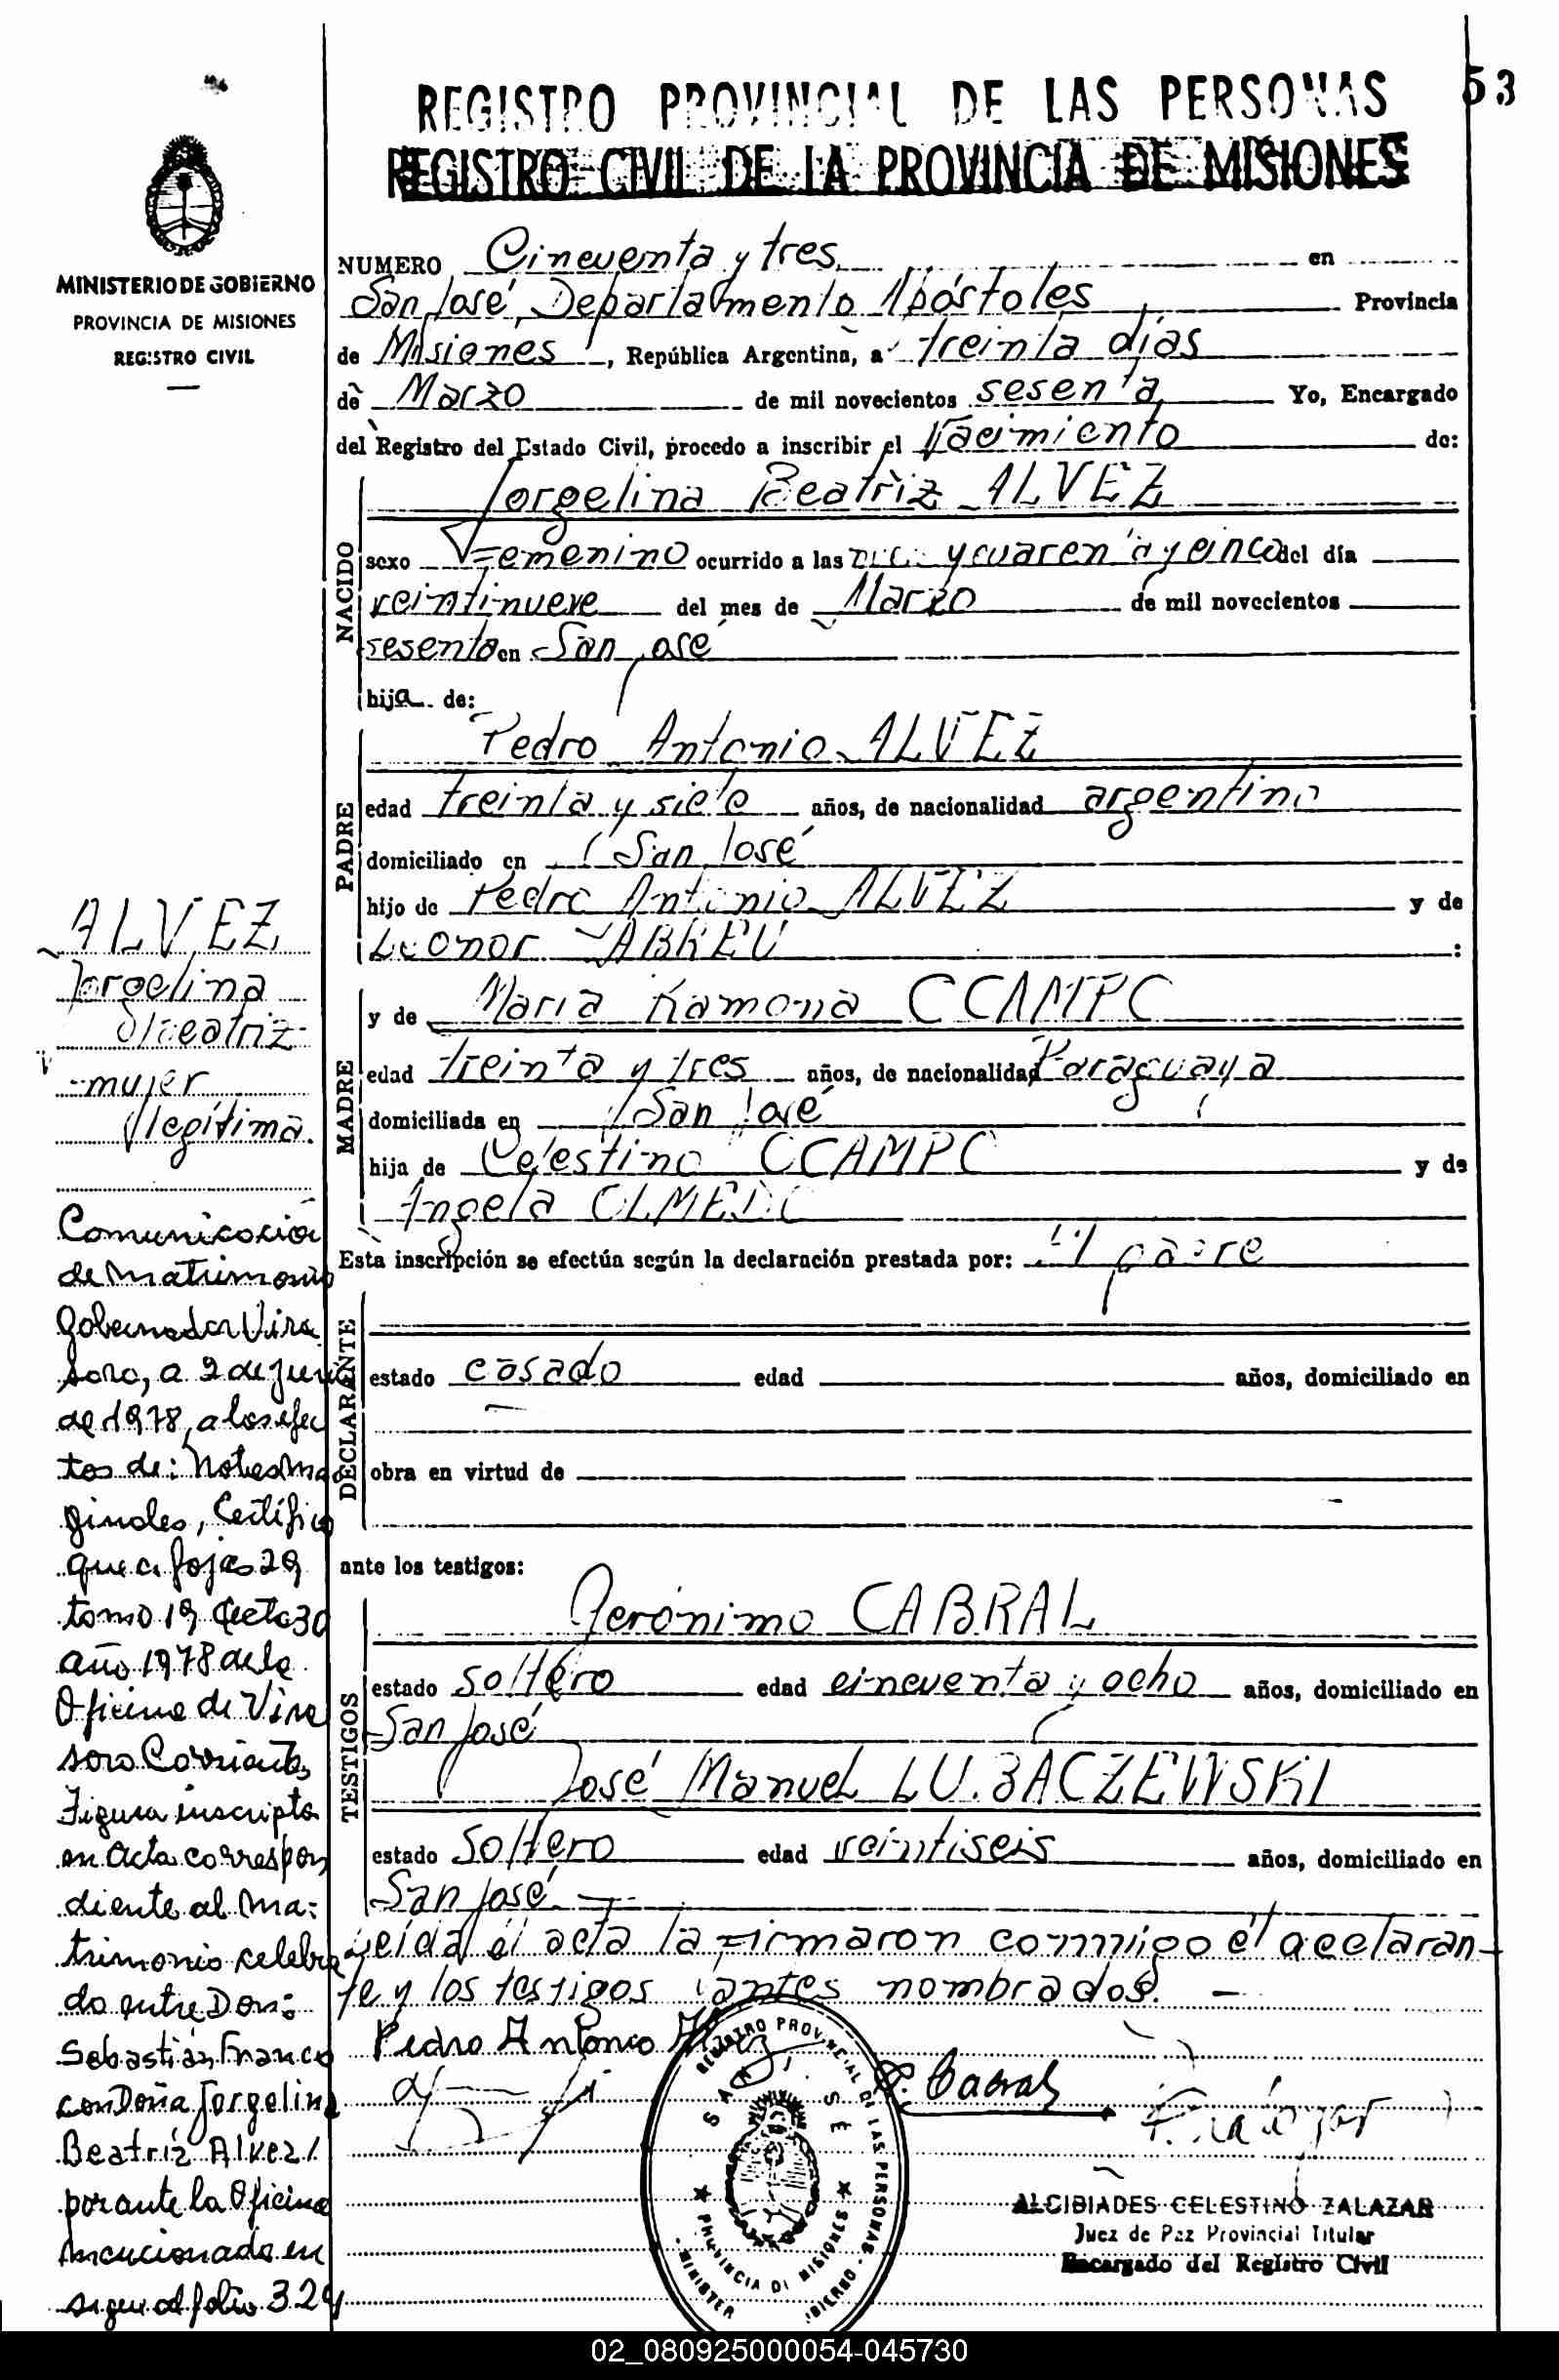 53
REGISTRO PROVINCIAL DE LAS PERSONAS
REGISTRO CIVIL DE LA PROVINCIA DE MISIONES
MINISTERIO DE GOBIERNO
PROVINCIA DE MISIONES
REGISTRO CIVIL
NUMERO Cincuenta y tres en
San José, Departamento Apóstoles Provincia
de Misiones, República Argentina, a treinta días
de Marzo de mil novecientos sesenta Yo, Encargado
del Registro del Estado Civil, procedo a inscribir el Nacimiento de:
NACIDO
Jorgelina Beatriz ALVEZ
sexo Femenino ocurrido a las y cuarenta y cinco del día
veintinueve del mes de Marzo de mil novecientos
sesenta en San José
hija de:
PADRE
Pedro Antonio ALVEZ
edad treinta y siete años, de nacionalidad argentino
domiciliado en San José
hijo de Pedro Antonio ALVEZ y de
Leonor ABREU :
MADRE
y de María Ramona OCAMPO
edad treinta y tres años, de nacionalidad Paraguaya
domiciliada en San José
hija de Celestino OCAMPO y de
Angela OLMEDO
Esta inscripción se efectúa según la declaración prestada por: El padre
DECLARANTE
estado casado edad años, domiciliado en
obra en virtud de
ante los testigos:
TESTIGOS
Gerónimo CABRAL
estado soltero edad cincuenta y ocho años, domiciliado en
San José
José Manuel LUBACZEWSKI
estado soltero edad veintiseis años, domiciliado en
San José
Leída el acta la firmaron conmigo el declaran-
te y los testigos antes nombrados.
Pedro Antonio Alvez
G. Cabral
REGISTRO PROVINCIAL DE LAS PERSONAS
SAN JOSÉ
PROVINCIA DE MISIONES
ALCIBIADES CELESTINO ZALAZAR
Juez de Paz Provincial Titular
Encargado del Registro Civil
ALVEZ
Jorgelina
Beatriz
mujer
legítima.
Comunicación
de Matrimonio
Gobernador Vira
soro, a 2 de junio
de 1978, a los efec
tos de: Notas Mar
ginales, Certifico
que a fojas 29
tomo 19 Acta 30
año 1978 de la
Oficina de Vira
soro Corrientes
Figura inscripta
en Acta correspon
diente al Ma=
trimonio celebra
do entre Don:
Sebastián Franco
con Doña Jorgelina
Beatriz Alvez/
por ante la Oficina
mencionada en
sigue al folio 324
02_080925000054-045730